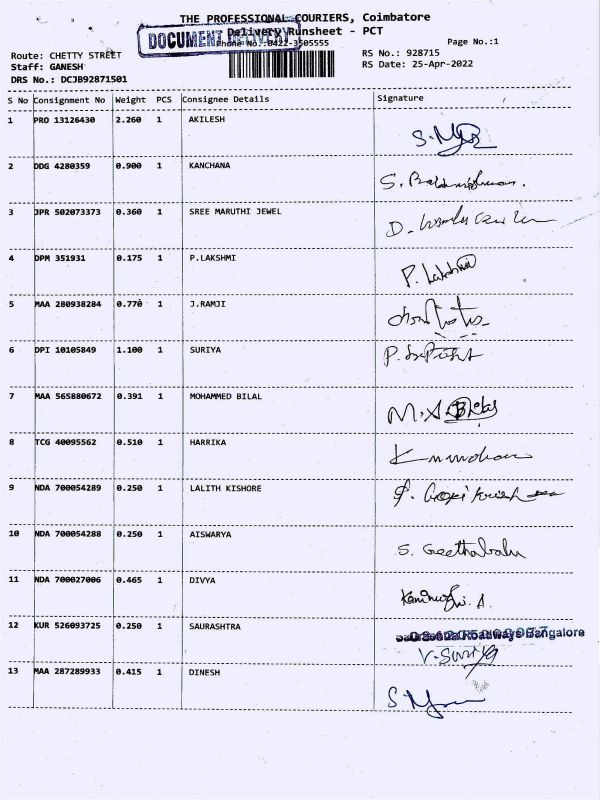 THE PROFESSIONAL COURIERS, Coimbatore
Delivery Runsheet - PCT
DOCUMENT DELIVERY
Phone No.:0422-3505555
Page No.:1
Route: CHETTY STREET
RS No.: 928715
Staff: GANESH
RS Date: 25-Apr-2022
DRS No.: DCJB92871501
S No Consignment No Weight PCS Consignee Details Signature
1 PRO 13126430 2.260 1 AKILESH
2 DDG 4280359 0.900 1 KANCHANA
3 JPR 502073373 0.360 1 SREE MARUTHI JEWEL
4 DPM 351931 0.175 1 P.LAKSHMI P. Lakshmi
5 MAA 280938284 0.770 1 J.RAMJI
6 DPI 10105849 1.100 1 SURIYA
7 MAA 565880672 0.391 1 MOHAMMED BILAL
8 TCG 40095562 0.510 1 HARRIKA
9 NDA 700054289 0.250 1 LALITH KISHORE
10 NDA 700054288 0.250 1 AISWARYA S. Geethabalu
11 NDA 700027006 0.465 1 DIVYA
12 KUR 526093725 0.250 1 SAURASHTRA Roadways Bangalore
V. Suriya
13 MAA 287289933 0.415 1 DINESH